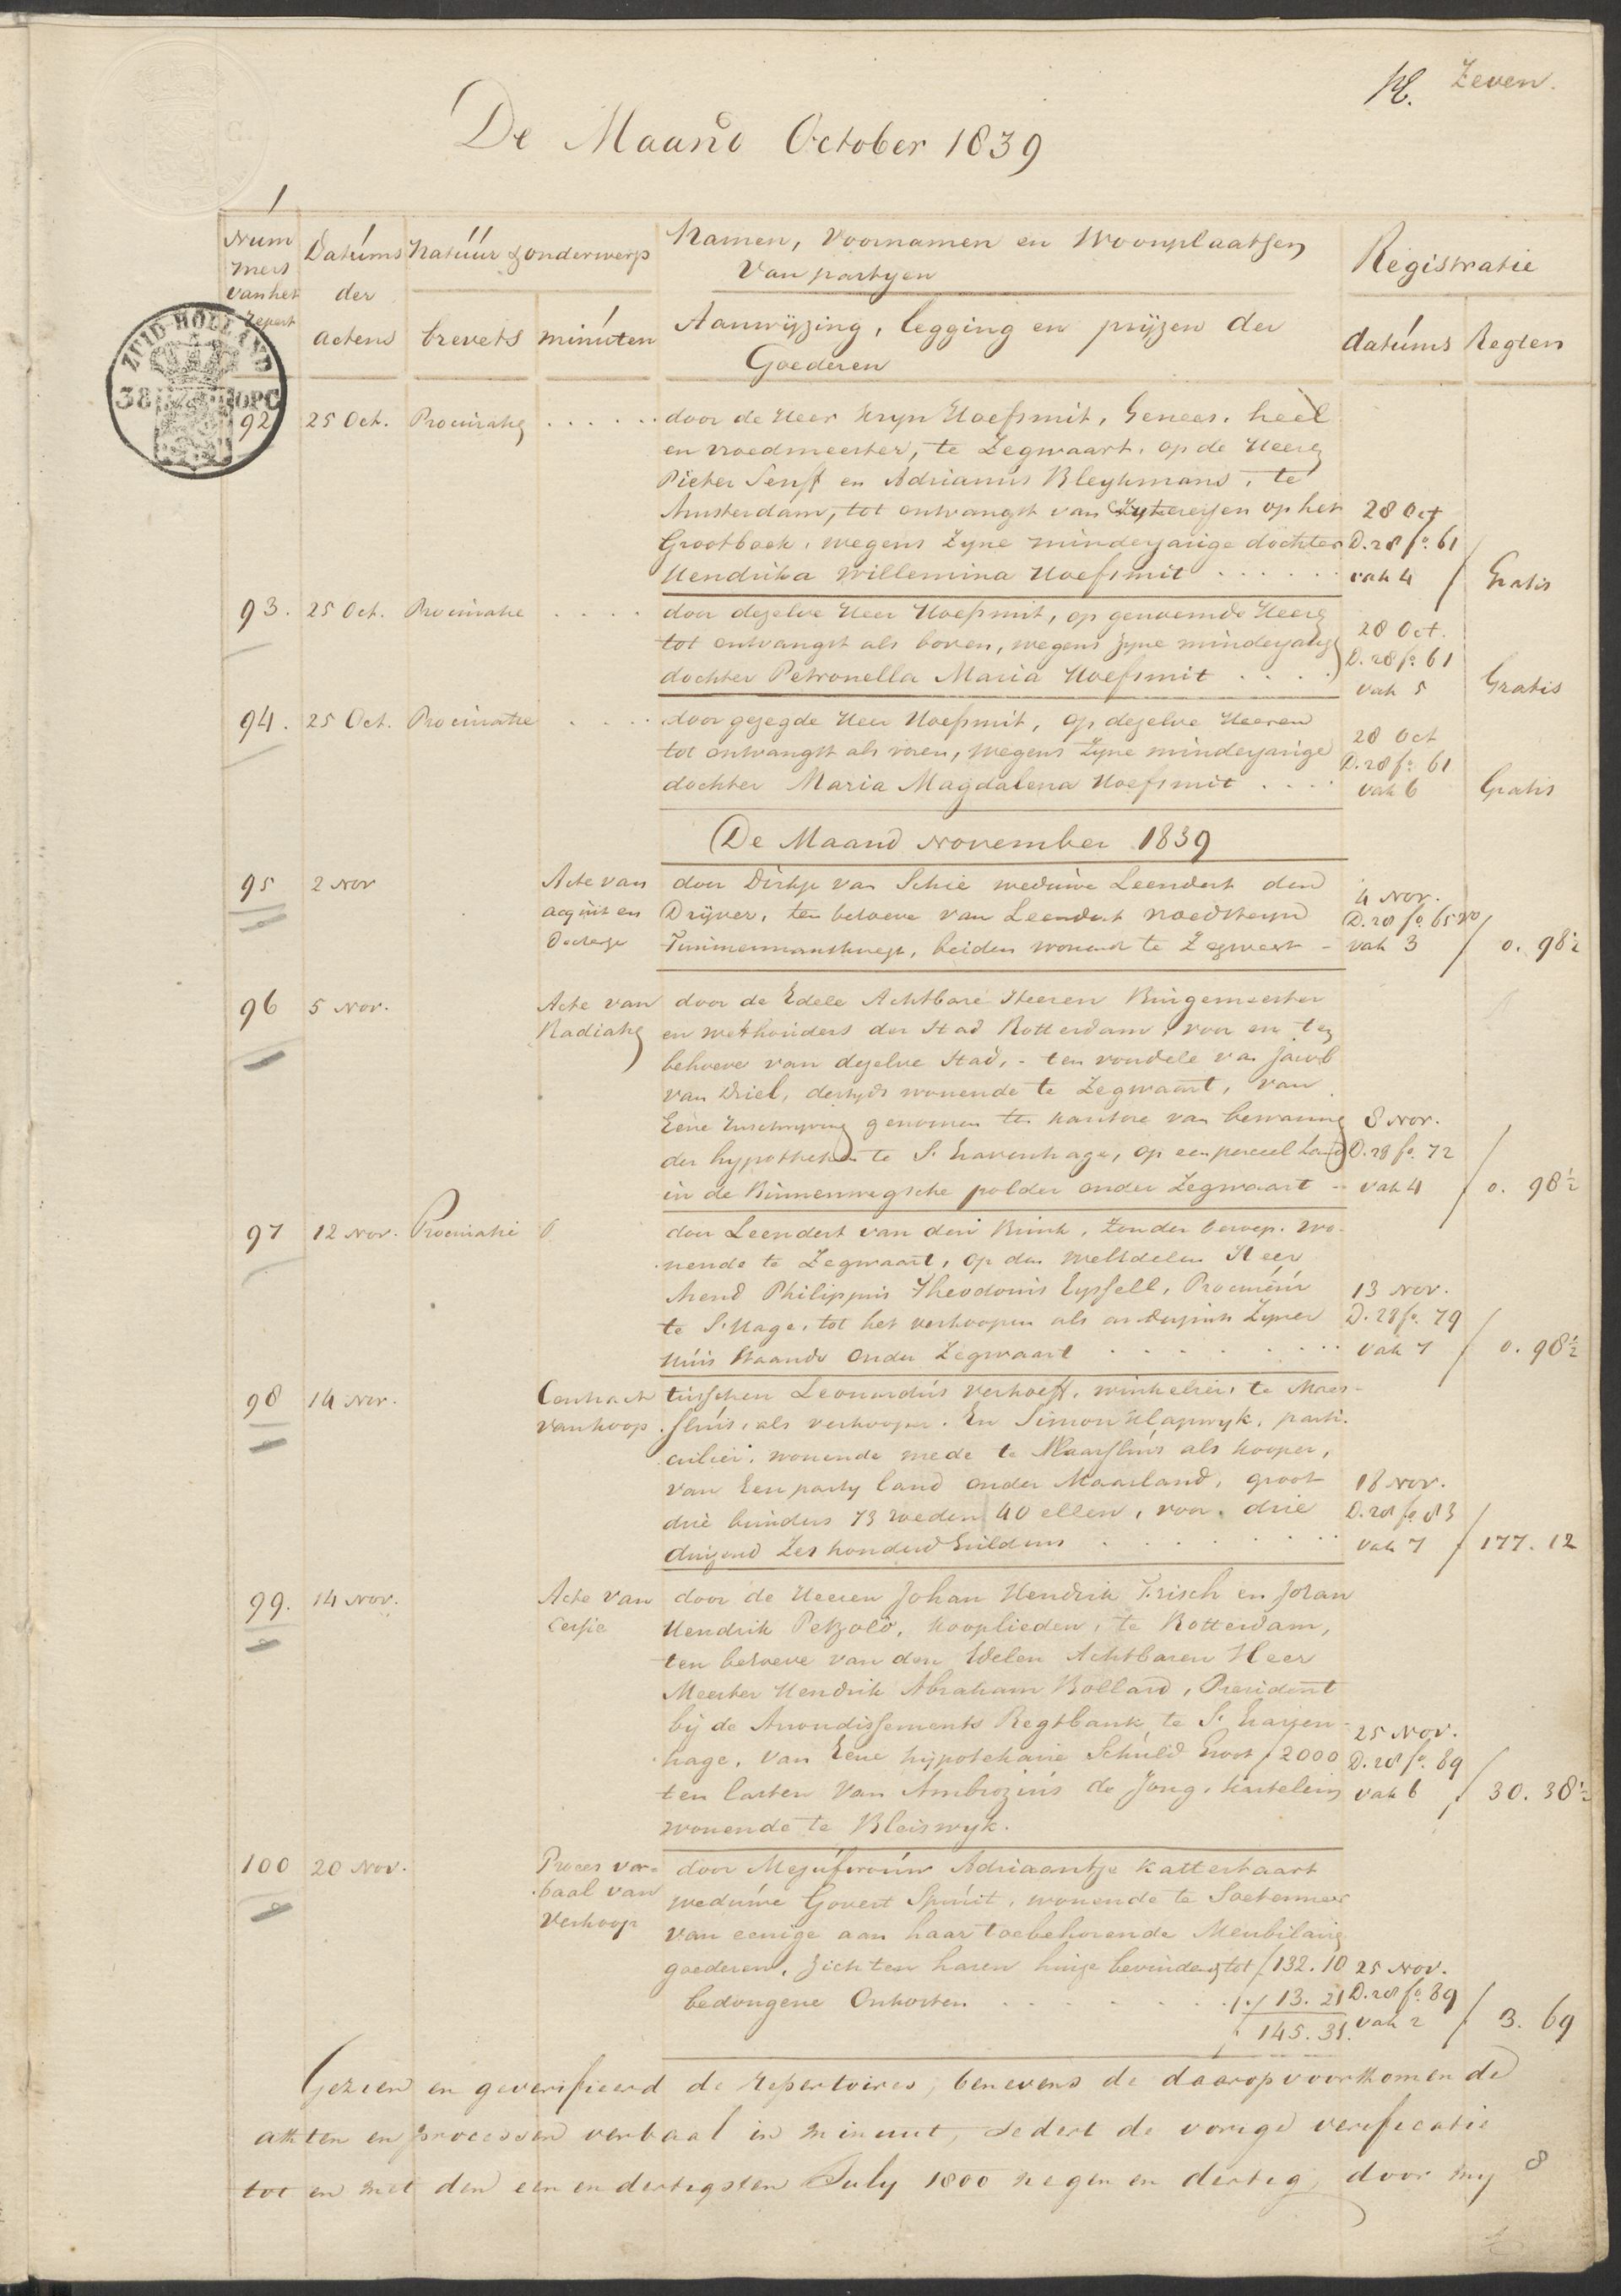 Zeven.
De Maand October 1839
Nummers van het Repert
Datums der actens
Natuur & onderwerp
brevets minuten
Namen, Voornamen en Woonplaatsen
Van partyen
Aanwyzing, legging en pryzen der
Goederen
Registratie
datums Regten
ZUID-HOLLAND
38 OPC
92 25 Oct. Procuratie door de Heer Kryn Hoefsmit, Genees, heel
en vroedmeester, te Zegwaart, op de Heeren
Pieter Senff en Adrianus Bleykmans, te
Amsterdam, tot ontvangst van op het 28 Oct
Grootboek, wegens Zyne minderjarige dochter D. 28 fo. 61
Hendrika Willemina Hoefsmit vak 4 Gratis
93. 25 Oct. Procuratie door dezelve Heer Hoefsmit, op genoemde Heeren
tot ontvangst als boven, wegens zyne minderjarige 28 Oct.
D. 28 fo. 61
dochter Petronella Maria Hoefsmit vak 5 Gratis
94. 25 Oct. Procuratie door gezegde Heer Hoefsmit, op dezelve Heeren
tot ontvangst als voren, wegens Zyne minderjarige 28 Oct
D. 28 fo. 61
dochter Maria Magdalena Hoefsmit vak 6 Gratis
De Maand November 1839
95 2 Nov Acte van door Dirkje van Schie weduwe Leendert den 4 Nov.
acquit en Dryver, ten behoeve van Leendert Noedsteyn D. 28 fo. 65 vo
decharge Timmermansknegt, beiden wonend te Zegwaart - vak 3 0. 98½
96 5 Nov. Acte van door de Edele Achtbare Heeren Burgemeester
Radiatie en wethouders der Stad Rotterdam, voor en ten
behoeve van dezelve Stad, - ten voordele van Jacob
van Driel, destyds wonende te Zegwaart, van
Eene Inschryving genomen ten kantore van bewaring 8 Nov.
der hypotheken te S. Gravenhage, op een perceel Land D. 28 fo. 72
in de Binnenwegsche polder onder Zegwaart - vak 4 0. 98½
97 12 Nov. Procuratie door Leendert van den Brink, Zonder beroep. wo-
nende te Zegwaart, op den Weledelen Heer
Arend Philippus Theodorus Eyssell, Procureur 13 Nov.
te S. Hage, tot het verkoopen als anderzints Zyner D. 28 fo. 79
Huis staande onder Zegwaart vak 7 0. 98½
98 14 Nov. Contract tusschen Leonardus Verhoeff, winkelier, te Maas-
van koop sluis, als verkooper. En Simon Klapwyk, parti-
culier, wonende mede te Maassluis als kooper,
van Een party land onder Maasland, groot 18 Nov.
drie bunders 73 roeden 40 ellen, voor drie D. 28 fo 83
duizend Zes honderd Guldens vak 7 177. 12
99. 14 Nov. Acte van door de Heeren Johan Hendrik Frisch en Johan
Cessie Hendrik Petzold, kooplieden, te Rotterdam,
ten behoeve van den Edelen Achtbaren Heer
Meester Hendrik Abraham Bollard, President
bij de Arrondissements Regtbank te S. Graven- 25 Nov.
hage, van Eene hypothekaire Schuld Groot f 2000 D. 28 fo. 89
ten lasten van Ambrozius de Jong, kastelein vak 6 30. 38½
wonende te Bleiswyk.
100 20 Nov. Proces ver- door Mejufvrouw Adriaantje Kattestaart
baal van weduwe Govert Spruit, wonende te Soetermeer
Verkoop van eenige aan haar toebehorende Meubilaire
goederen, zich ten haren huize bevindende tot f 132. 10 25 Nov.
bedongene Onkosten 13. 21 D. 28 fo. 89
145. 31. vak 2 3. 69
Gezien en geverifieerd de repertoires, benevens de daarop voorkomende
akten en processen verbaal in minuut, sedert de vorige verificatie
tot en met den een en dertigsten July 1800 negen en dertig, door my 8